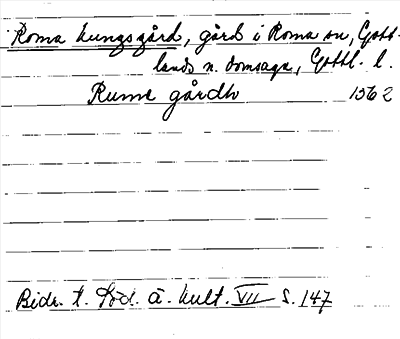 Roma kungsgård, gård i Roma sn, Gott-
lands n. domsaga, Gottl. l.
Rume gårdh 1562
Bidr. t. Söd. ä. kult. VII S. 147